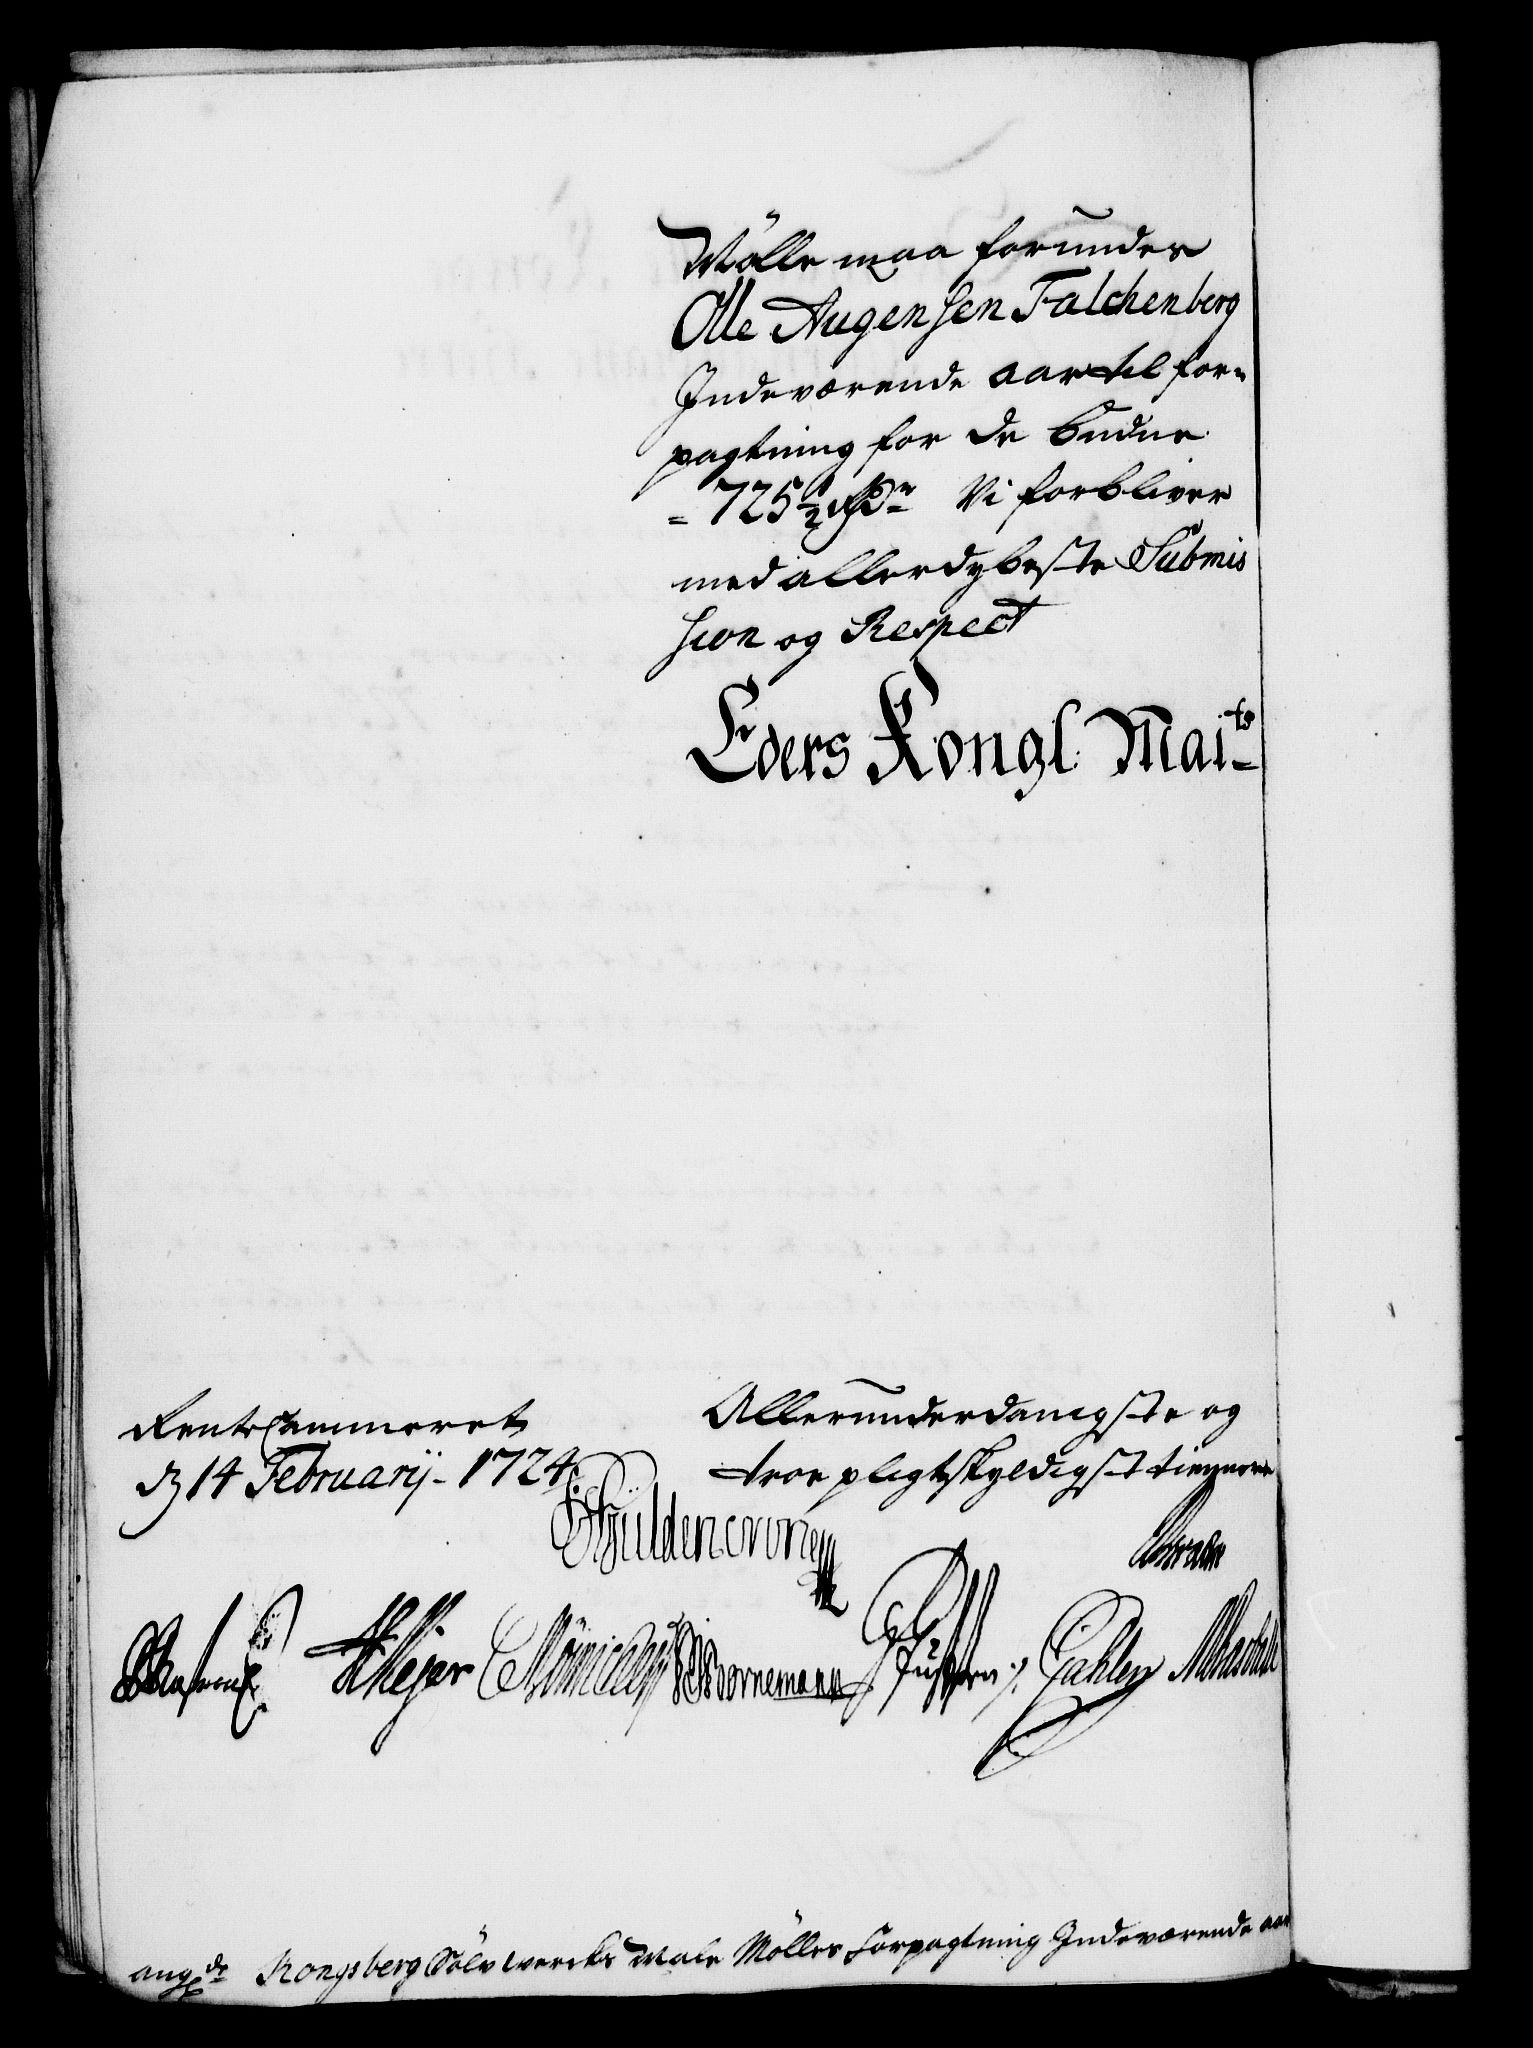 Mölle maa forundes
Olle Augensen Falchenberg
Indeværende aar til for-
pagtning for de budne
= 725 1/2 Rdr Vi forbliver
med allerdybeste Submis
sion og Respect
Eders Kongl Maits
RenteCammeret
d 14 Februarij - 1724
Allerunderdanigste og
troe pligtskyldigste tiennere
Güldencrone
Meyer
Bornemann
Mölnichen
ang.de Kongsberg Sölv wercks Male Mölles Forpagtning Indeværende aar